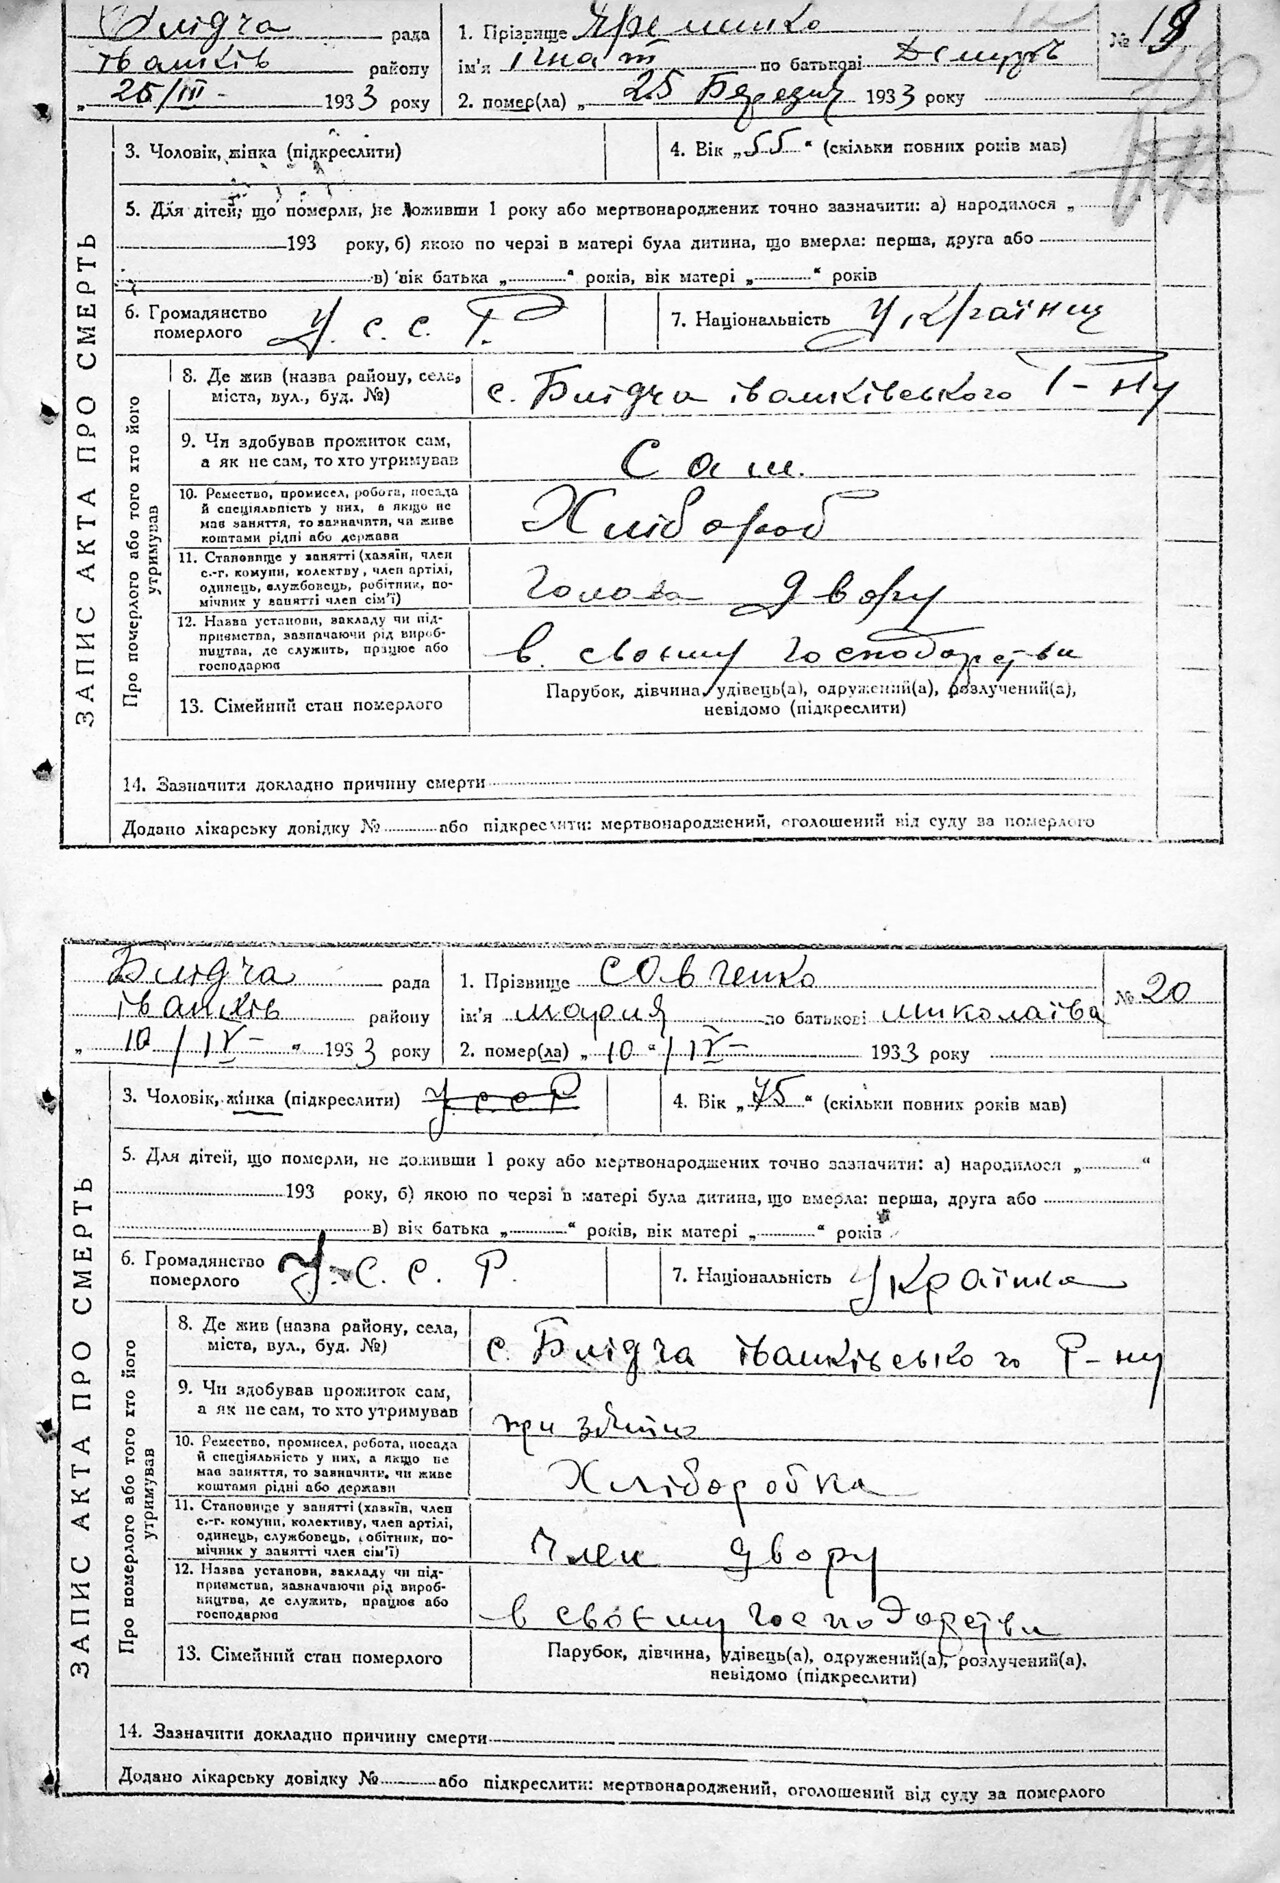 Блідча рада
іванків району
„ 25/III - 1933 року
1. Прізвище Яременко
ім'я ігнат по батькові
2. помер(ла) „ 25 Березня 1933 року
№ 19
ЗАПИС АКТА ПРО СМЕРТЬ
3. Чоловік, жінка (підкреслити)
4. Вік „55“ (скільки повних років мав)
5. Для дітей, що померли, не доживши 1 року або мертвонароджених точно зазначити: а) народилося „ “
193 року, б) якою по черзі в матері була дитина, що вмерла: перша, друга або
в) вік батька „ “ років, вік матері „ “ років
6. Громадянство
померлого
У. С. С. Р.
7. Національність Українец
Про померлого або того хто його
утримував
8. Де жив (назва району, села,
міста, вул., буд. №)
с. Блідча іванківського Р-ну
9. Чи здобував прожиток сам,
а як не сам, то хто утримував
Сам.
10. Ремество, промисел, робота, посада
й спеціяльність у них, а якщо не
мав заняття, то зазначити, чи живе
коштами рідні або держави
Хлібороб
11. Становище у занятті (хазяїн, член
с.-г. комуни, колективу, член артілі,
одинець, службовець, робітник, по-
мічник у занятті член сім'ї)
Голова двору
12. Назва установи, закладу чи під-
приємства, зазначаючи рід вироб-
ництва, де служить, працює або
господарює
в своєму господарстві
13. Сімейний стан померлого
Парубок, дівчина, удівець(а), одружений(а), розлучений(а),
невідомо (підкреслити)
14. Зазначити докладно причину смерти
Додано лікарську довідку № або підкреслити: мертвонароджений, оголошений від суду за померлого
Блідча рада
іванків району
„ 10 / IV - “ 1933 року
1. Прізвище Савченко
ім'я мария по батькові миколаівна
2. помер(ла) „ 10 “ / IV - 1933 року
№ 20
ЗАПИС АКТА ПРО СМЕРТЬ
3. Чоловік, жінка (підкреслити) У С С Р
4. Вік „75“ (скільки повних років мав)
5. Для дітей, що померли, не доживши 1 року або мертвонароджених точно зазначити: а) народилося „ “
193 року, б) якою по черзі в матері була дитина, що вмерла: перша, друга або
в) вік батька „ “ років, вік матері „ “ років
6. Громадянство
померлого
У. С. С. Р.
7. Національність Українка
Про померлого або того хто його
утримував
8. Де жив (назва району, села,
міста, вул., буд. №)
с. Блідча іванківського Р-ну
9. Чи здобував прожиток сам,
а як не сам, то хто утримував
при
10. Ремество, промисел, робота, посада
й спеціяльність у них, а якщо не
мав заняття, то зазначити, чи живе
коштами рідні або держави
Хліборобка
11. Становище у занятті (хазяїн, член
с.-г. комуни, колективу, член артілі,
одинець, службовець, робітник, по-
мічник у занятті член сім'ї)
Член двору
12. Назва установи, закладу чи під-
приємства, зазначаючи рід вироб-
ництва, де служить, працює або
господарює
в своєму господарстві
13. Сімейний стан померлого
Парубок, дівчина, удівець(а), одружений(а), розлучений(а),
невідомо (підкреслити)
14. Зазначити докладно причину смерти
Додано лікарську довідку № або підкреслити: мертвонароджений, оголошений від суду за померлого